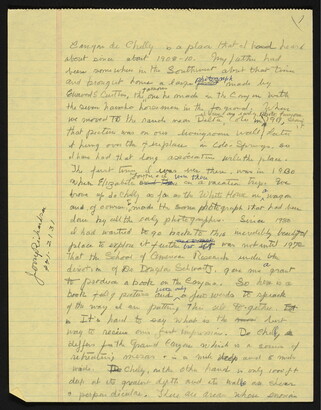 Canyon de Chelly is a place that I had heard
about since about 1908-10. My father had
been somewhere in the Southwest about that time
and brought home a large photograph made by
Edward S. Curtis, the famous one he made in the Canyon with
the seven Navaho horsemen in the foreground. When
we moved to the ranch near
that picture was on our livingroom wall. Later
it hung over the fireplace in Colo. Springs, so
I have had that long association with the place.
The first time I was there, was in 1930
when Elizabeth and I were on a vacation trip. We
drove up de Chelly as far as the White House,
and of course, made the same photograph that had been
done by all the early photographers. Since 1930
I had wanted to go back to this incredibly beautiful
place to explore it further but it was not until 1970
that the School of American Research under the
direction of Dr. Douglas Schwartz, gave me a grant
to produce a book on the Canyon. So here is a
book of pictures and a few words to speak
of the way I am putting this all together.
It is hard to say what is the best
way to receive one's first impressions. De Chelly
differs from Grand Canyon which is a series of
repeating mesas & is a mile deep and 8 miles
wide. De Chelly, on the other hand is only 1000 ft
deep at its greatest depth and its walls are sheer
& perpendicular. There are areas where